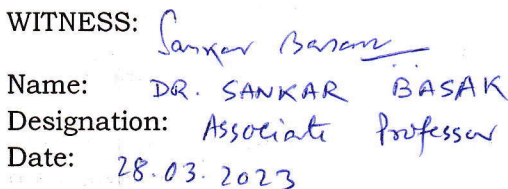 WITNESS: Sankar Basak
Name: DR. SANKAR BASAK
Designation: Associate Professor
Date: 28.03.2023